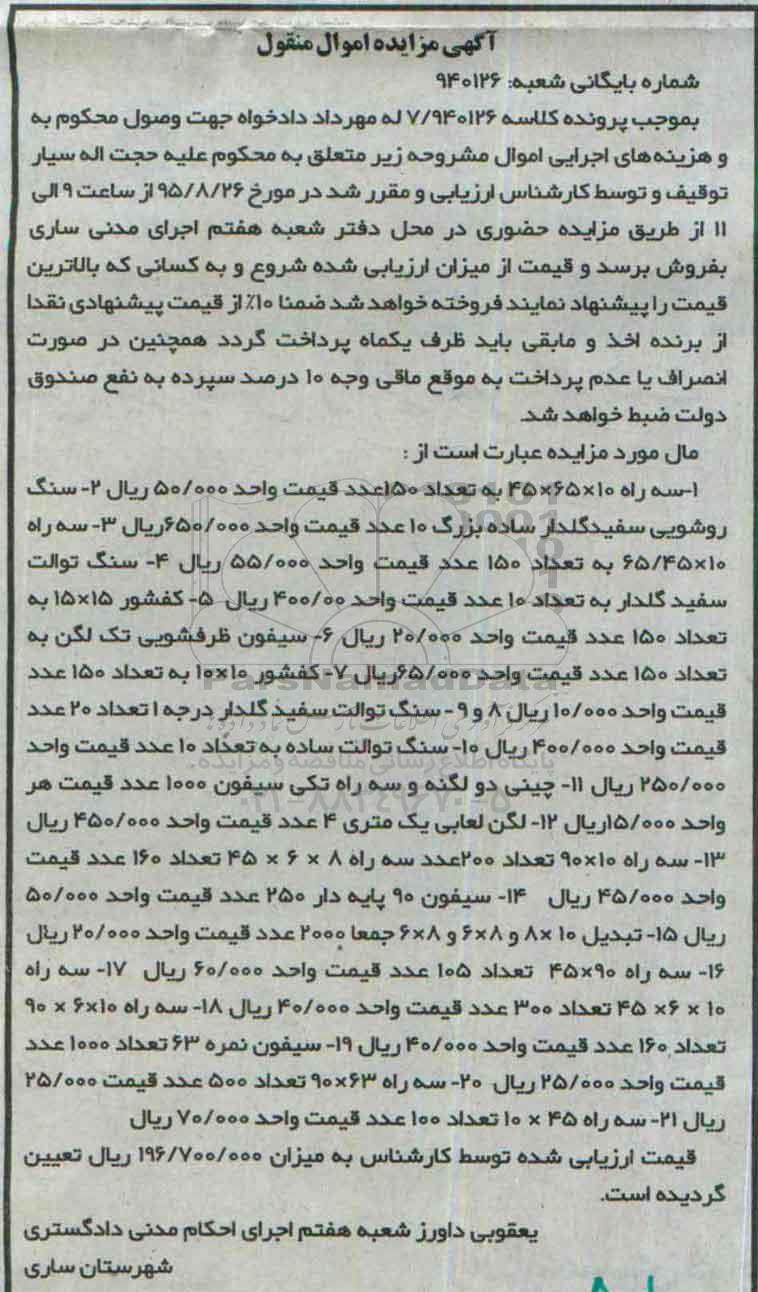 آگهی مزایده اموال منقول
شماره بایگانی شعبه: ۹۴۰۱۲۶
بموجب پرونده کلاسه ۷/۹۴۰۱۲۶ له مهرداد دادخواه جهت وصول محکوم به
و هزینه‌های اجرایی اموال مشروحه زیر متعلق به محکوم علیه حجت اله سیار
توقیف و توسط کارشناس ارزیابی و مقرر شد در مورخ ۹۵/۸/۲۶ از ساعت ۹ الی
۱۱ از طریق مزایده حضوری در محل دفتر شعبه هفتم اجرای مدنی ساری
بفروش برسد و قیمت از میزان ارزیابی شده شروع و به کسانی که بالاترین
قیمت را پیشنهاد نمایند فروخته خواهد شد ضمنا ۱۰٪ از قیمت پیشنهادی نقدا
از برنده اخذ و مابقی باید ظرف یکماه پرداخت گردد همچنین در صورت
انصراف یا عدم پرداخت به موقع ماقی وجه ۱۰ درصد سپرده به نفع صندوق
دولت ضبط خواهد شد.
مال مورد مزایده عبارت است از :
۱-سه راه ۱۰×۶۵×۴۵ به تعداد ۱۵۰عدد قیمت واحد ۵۰/۰۰۰ ریال ۲- سنگ
روشویی سفیدگلدار ساده بزرگ ۱۰ عدد قیمت واحد ۶۵۰/۰۰۰ریال ۳- سه راه
۱۰×۶۵/۴۵ به تعداد ۱۵۰ عدد قیمت واحد ۵۵/۰۰۰ ریال ۴- سنگ توالت
سفید گلدار به تعداد ۱۰ عدد قیمت واحد ۴۰۰/۰۰ ریال ۵- کفشور ۱۵×۱۵ به
تعداد ۱۵۰ عدد قیمت واحد ۲۰/۰۰۰ ریال ۶- سیفون ظرفشویی تک لگن به
تعداد ۱۵۰ عدد قیمت واحد ۶۵/۰۰۰ریال ۷- کفشور ۱۰×۱۰ به تعداد ۱۵۰ عدد
قیمت واحد ۱۰/۰۰۰ ریال ۸ و ۹ - سنگ توالت سفید گلدار درجه ۱ تعداد ۲۰ عدد
قیمت واحد ۴۰۰/۰۰۰ ریال ۱۰- سنگ توالت ساده به تعداد ۱۰ عدد قیمت واحد
۲۵۰/۰۰۰ ریال ۱۱- چینی دو لگنه و سه راه تکی سیفون ۱۰۰۰ عدد قیمت هر
واحد ۱۵/۰۰۰ریال ۱۲- لگن لعابی یک متری ۴ عدد قیمت واحد ۴۵۰/۰۰۰ ریال
۱۳- سه راه ۱۰×۹۰ تعداد ۲۰۰عدد سه راه ۸ × ۶ × ۴۵ تعداد ۱۶۰ عدد قیمت
واحد ۴۵/۰۰۰ ریال ۱۴- سیفون ۹۰ پایه دار ۲۵۰ عدد قیمت واحد ۵۰/۰۰۰
ریال ۱۵- تبدیل ۱۰ ×۸ و ۸×۶ و ۸×۶ جمعا ۲۰۰۰ عدد قیمت واحد ۲۰/۰۰۰ ریال
۱۶- سه راه ۹۰×۴۵ تعداد ۱۰۵ عدد قیمت واحد ۶۰/۰۰۰ ریال ۱۷- سه راه
۱۰ × ۶× ۴۵ تعداد ۳۰۰ عدد قیمت واحد ۴۰/۰۰۰ ریال ۱۸- سه راه ۱۰×۶ × ۹۰
تعداد ۱۶۰ عدد قیمت واحد ۴۰/۰۰۰ ریال ۱۹- سیفون نمره ۶۳ تعداد ۱۰۰۰ عدد
قیمت واحد ۲۵/۰۰۰ ریال ۲۰- سه راه ۶۳×۹۰ تعداد ۵۰۰ عدد قیمت ۲۵/۰۰۰
ریال ۲۱- سه راه ۴۵ × ۱۰ تعداد ۱۰۰ عدد قیمت واحد ۷۰/۰۰۰ ریال
قیمت ارزیابی شده توسط کارشناس به میزان ۱۹۶/۷۰۰/۰۰۰ ریال تعیین
گردیده است.
یعقوبی داورز شعبه هفتم اجرای احکام مدنی دادگستری
شهرستان ساری
ParsNamadData
پایگاه اطلاع رسانی مناقصه و مزایده
۰۲۱-۸۸۳۴۹۶۷۰-۵